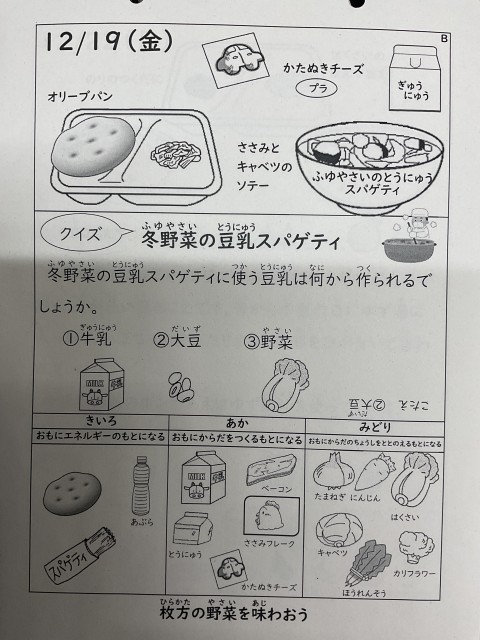 12/19(金)
B
かたぬきチーズ
プラ
ぎゅう
にゅう
オリーブパン
ささみと
キャベツの
ソテー
ふゆやさいのとうにゅう
スパゲティ
クイズ
ふゆやさい とうにゅう
冬野菜の豆乳スパゲティ
ふゆやさい とうにゅう つか とうにゅう なに つく
冬野菜の豆乳スパゲティに使う豆乳は何から作られるで
しょうか。
ぎゅうにゅう だいず やさい
①牛乳 ②大豆 ③野菜
MILK
こたえ ②大豆
だいず
きいろ あか みどり
おもにエネルギーのもとになる おもにからだをつくるもとになる おもにからだのちょうしをととのえるもとになる
MILK
ベーコン
たまねぎ にんじん
あぶら
はくさい
とうにゅう
ささみフレーク
キャベツ
スパゲティ
かたぬきチーズ
カリフラワー
ほうれんそう
ひらかた やさい あじ
枚方の野菜を味わおう